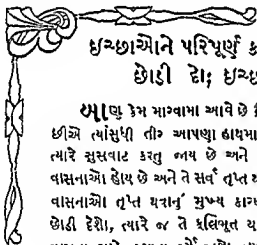 ઇચ્છાઓને પરિપૂર્ણ ક
છોડી દો; ઇચ્છ
બાણ કેમ મારવામા આવે છે
છીએ ત્યાંસુધી તીર આપણા હાથમા
ત્યારે સુસવાટ કરતુ જાય છે અને
વાસનાઓ હોય છે અને તે સર્વ તૃપ્ત થ
વાસનાઓ તૃપ્ત થવાનું મુખ્ય કારણ
છોડી દેશો, ત્યારે જ તે ફલિભૂત થ